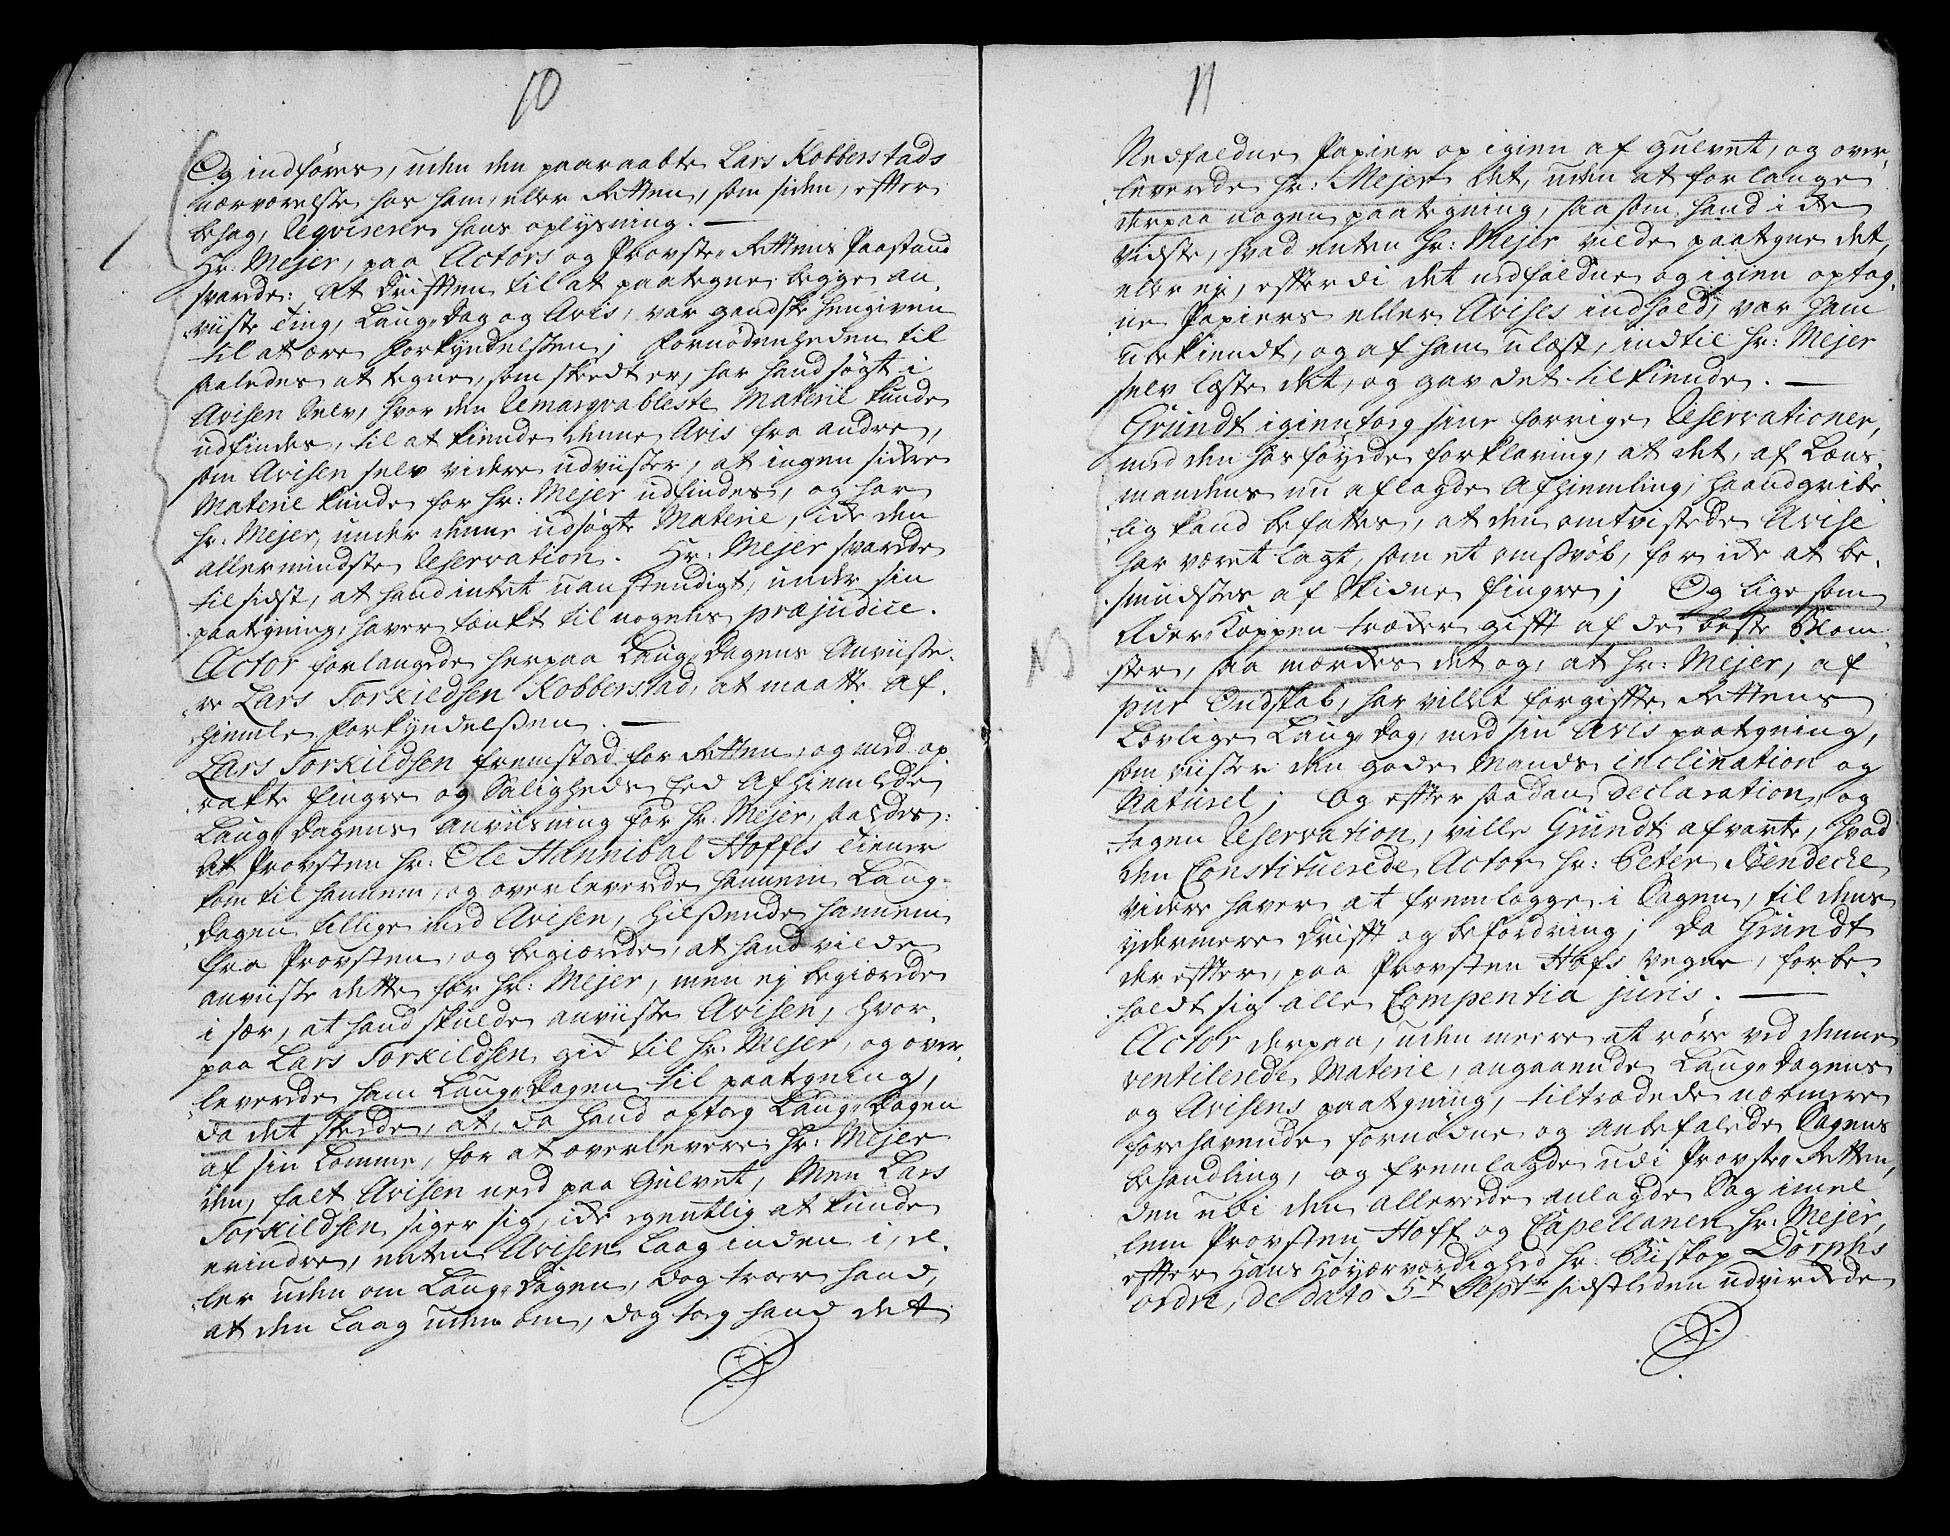 10
Og indføres, uden den paaraabte Lars Kobberstads
nærværelse hos ham, eller Retten, som siden, efter
behag, Reqvirerer hans oplysning. —
Hr: Mejer, paa Actors og Provste-Rettens Paastand
svarede: At Drifften til at paategne begge an-
viiste Ting, Laug-Dag og Avis, var gandske hengiven
til at ære Forkyndelssen; Fornødenheden til
saaledes at tegne, som skeedt er, har hand søgt i
Avisen Selv, hvor den Remarqvableste Materie kunde
udfindes, til at kiende denne Avis fra andre,
som Avisen selv videre udviiser, at ingen sidere
Materie kunde for Hr: Mejer udfindes, og har
Hr: Mejer, under denne udsøgte Materie, icke den
allermindste Reservation. Hr: Mejer svarede
til sidst, at hand intet uanstendigt, under sin
paategning, haver tænkt til nogens præjudice.
Actor forlangede herpaa Laug-Dagens Anviise-
re Lars Torkildsen Kobberstad, at maatte af-
hiemle Forkyndelssen. —
Lars Torkildsen fremstod for Retten, og med op
rakte Fingre og Saligheds Eed Afhiemlede
Laug-Dagens Anviisning for Hr: Mejer, saaledes:
At Provsten Hr: Ole Hannibal Hoffes Tiener
kom til hannem, og overleverede hannem Laug-
Dagen tillige med Avisen, hilssende hannem
fra Provsten, og begiærede, at hand vilde
anviise dette for Hr: Mejer, men ej begiærede
i sær, at hand skulde anviise Avisen, hvor-
paa Lars Torkildsen gik til Hr: Mejer, og over-
leverede ham Laug-Dagen til paategning,
da det skeede, at, da hand optog Laug-Dagen
af sin Lomme, for at overlevere Hr: Mejer
den, falt Avisen need paa Gulvet, Men Lars
Torkildsen siger sig, icke egentlig at kunde
erindre, enten Avisen laag inden i, el-
ler uden om Laug-Dagen, dog troer hand,
at den laag uden om, dog tog hand det
11
Nedfaldne Papier op igien af gulvet, og over-
leverede Hr: Mejer det, uden at forlange
derpaa nogen paategning, saasom hand icke
vidste, hvad enten Hr: Mejer vilde paategne det,
eller ej, efterdi det nedfaldne og igien optag-
ne Papiers eller Avises indhold, var ham
ubekiendt, og af ham ulæst, indtil Hr: Mejer
selv læste det, og gav det tilkiende. —
Grundt igientog sine forrige Reservationer,
med den hosføyede forklaring, at det, af Lens-
mandens nu aflagde Afhiemling, haandgribe-
lig kand befattes, at den omtvistede Avise
har været lagt, som et omssvøb, for icke at be-
smudstes af Skidne fingre; Og lige som
Eder-Koppen træder gifft af de beste Blom-
ster, saa mærkes det og, at Hr: Mejer, af
puur Ondskab, har villet forgiffte Rettens
Lovlige Laug-Dag, med sin Avis paategning,
som viiser den gode Mands inclination og
Naturel; Og efter saadan declaration, og
tagen Reservation, ville Grundt afvarte, hvad
den Constituerede Actor Hr: Peter Bendeche
videre haver at fremlegge i Sagen, til dens
ydermere Drifft og befordring; Da Grundt
derefter, paa Provsten Hofs vegne, forbe-
holdt sig alle Compentia juris. —
Actor derpaa, uden meere at røre ved denne
ventilerede Materie, angaaende Laug-Dagens
og Avisens paategning, tiltrædede nærmere
forehavende fornødne og anbefalede Sagens
behandling, og fremlagde udi Provste-Retten,
den udi den allerede anlagde Sag imel-
lem Provsten Hoff og Capellanen Hr: Mejer,
efter Hans Høyærværdighed Hr: Biskop Dorphs
ordre, de dato 5t Septr sidstleden udvirkede